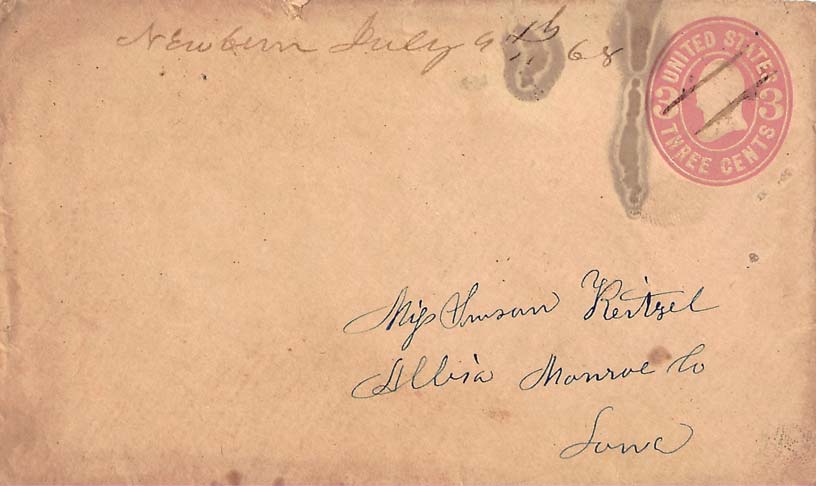 Newbern July 9th 68
UNITED STATES
3 3
THREE CENTS
Miss Susan Keitzel
Albia Monroe Co
Iowa